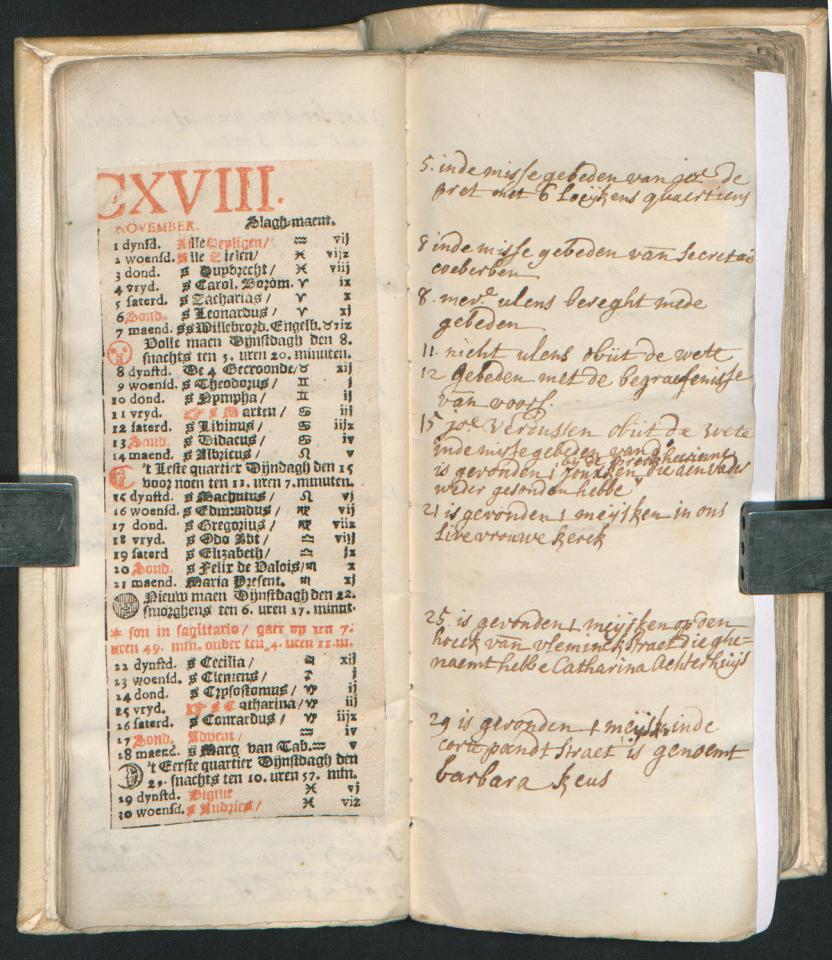 CXVIII.
NOVEMBER. Slagh-maent.
1 dynsd. Alle Heyligen/ ♒ vij
2 woensd. Alle Zielen/ ♓ viiz
3 dond. s Huybrecht/ ♓ viij
4 vryd. s Carol. Borom. ♈ ix
5 saterd. s Zacharias/ ♈ x
6 Sond. s Leonardus/ ♈ xj
7 maend. ss Willebrord. Engelb. ♉ xiz
Volle maen Dijnstdagh den 8.
snachts ten 5. uren 20. minuten.
8 dynstd. De 4 Gecroonde/ ♉ xij
9 woensd. s Theodorus/ ♊ j
10 dond. s Nympha/ ♊ ij
11 vryd. s Marten/ ♋ iij
12 saterd. s Livinus/ ♋ iijz
13 Sond. s Didacus/ ♌ iv
14 maend. s Albricus/ ♌ v
't Leste quartier Dijndagh den 15
voor noen ten 11. uren 7. minuten.
15 dynstd. s Machutus/ ♌ vj
16 woensd. s Edmundus/ ♍ vij
17 dond. s Gregorius/ ♍ viiz
18 vryd. s Odo Abt/ ♎ viij
19 saterd s Elizabeth/ ♎ ix
20 Sond. s Felix de Valois/ ♏ x
21 maend. Maria Present. ♏ xj
Nieuw maen Dijnstdagh den 22.
smorghens ten 6. uren 17. minut.
* son in sagittario/ gaet op ten 7.
uren 49. min. onder ten 4. uren 11. m.
22 dynstd. s Cecilia/ xij
23 woensd. s Clemens/ j
24 dond. s Crysostomus/ ♑ ij
25 vryd. s Catharina/ ♑ iij
26 saterd. s Conrardus/ ♑ iijz
27 Sond. Advent/ ♒ iv
28 maend. s Marg van Tab. ♒ v
't Eerste quartier Dijnstdagh den
29. snachts ten 10. uren 57. min.
29 dynstd. Vigilie ♓ vj
30 woensd. s Andries/ ♓ viz
5. inde misse gebeden van joe de
pret met 6 quartiers
8 inde misse gebeden van Secretaris
coeberben
8. mere ulens bereght mede
gebeden
11 nicht ulens obiit de wete
12 gebeden met de begraefenisse
van voors.
15 joe verdussen obiit de wete
inde misse gebeden van do
is gevonden 1 jonxken die den vader
weder gesonden hebbe
21 is gevonden 1 meijsken in ons
live vrouwe kerck
25. is gevonden 1 meijsken op den
hoeck van vleminckstraet die ghe-
naemt hebbe Catharina Achterhuijs
29 is gevonden 1 meijsken inde
corte pandt straet is genoemt
barbara keus